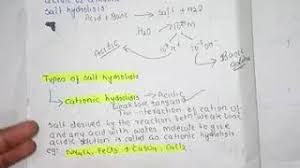 salt hydrolysis
Acid + Base → Salt + H2O
H2O
Acidic
Types of salt hydrolysis
cationic hydrolysis → Acidic
The interaction of cation of
salt derived by the reaction both weak base
and any acid with water molecule to give
acidic solution is called as cationic hydrolysis
eg: NH4Cl, FeCl3, CuSO4, CaCl2